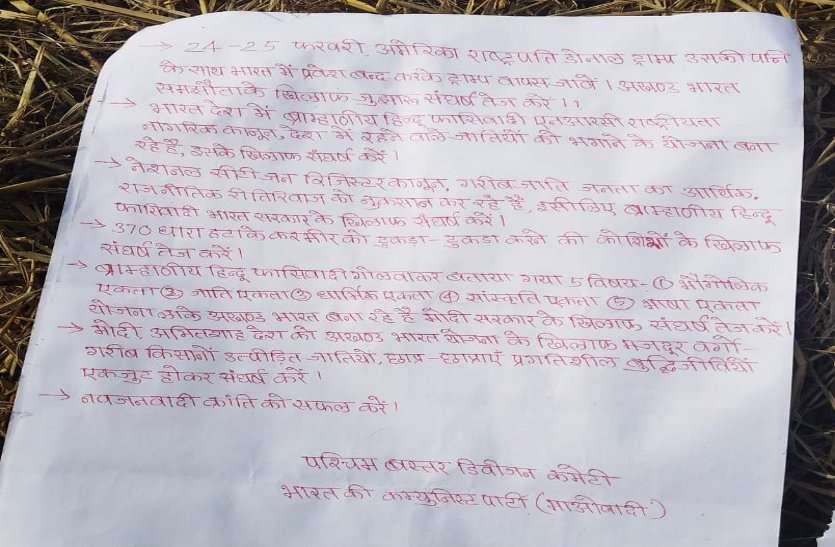 → 24-25 फरवरी, अमेरिका राष्ट्रपति डोनाल ट्राम्प उसकी पत्नि
के साथ भारत में प्रवेश बन्द करके ट्राम्प वापस जावें । अखण्ड भारत
समझौता के खिलाफ जुझारू संघर्ष तेज करें ।।
→ भारत देश में ब्राम्हाणीय हिन्दू फासिवादी एनआरसी राष्ट्रीयता
नागरिक कानून, देश में रहने वाले जातियों को भगाने के योजना बना
रहे हैं, उसके खिलाफ संघर्ष करें ।
→ नेशनल सीटीजन रिजिस्टर कानून, गरीब जाति जनता का आर्थिक,
राजनीतिक रीतिरिवाज को नुकसान कर रहे हैं, इसीलिए ब्राम्हाणीय हिन्दू
फासिवादी भारत सरकार के खिलाफ संघर्ष करें ।
→ 370 धारा हटाके कश्मीर को टुकडा-टुकडा करने की कोशिशों के खिलाफ
संघर्ष तेज करें ।
→ ब्राम्हाणीय हिन्दू फासिवादी गोलवाकर बताया गया 5 विषय- ① भौगोलिक
एकता ② जाति एकता ③ धार्मिक एकता ④ सांस्कृति एकता ⑤ भाषा एकता
योजना अखण्ड भारत बना रहे है मोदी सरकार के खिलाफ संघर्ष तेज करें ।
→ मोदी, अमितशाह देश को अखण्ड भारत योजना के खिलाफ मजदूर वर्गो-
गरीब किसानों उत्पीडित जातियों, छात्र-छात्राएं प्रगतिशील बुद्धिजीवियों
एकजुट होकर संघर्ष करें ।
→ नवजनवादी क्रांति को सफल करें ।
पश्चिम बस्तर डिवीजन कमेटी
भारत की कम्युनिस्ट पार्टी (माओवादी)